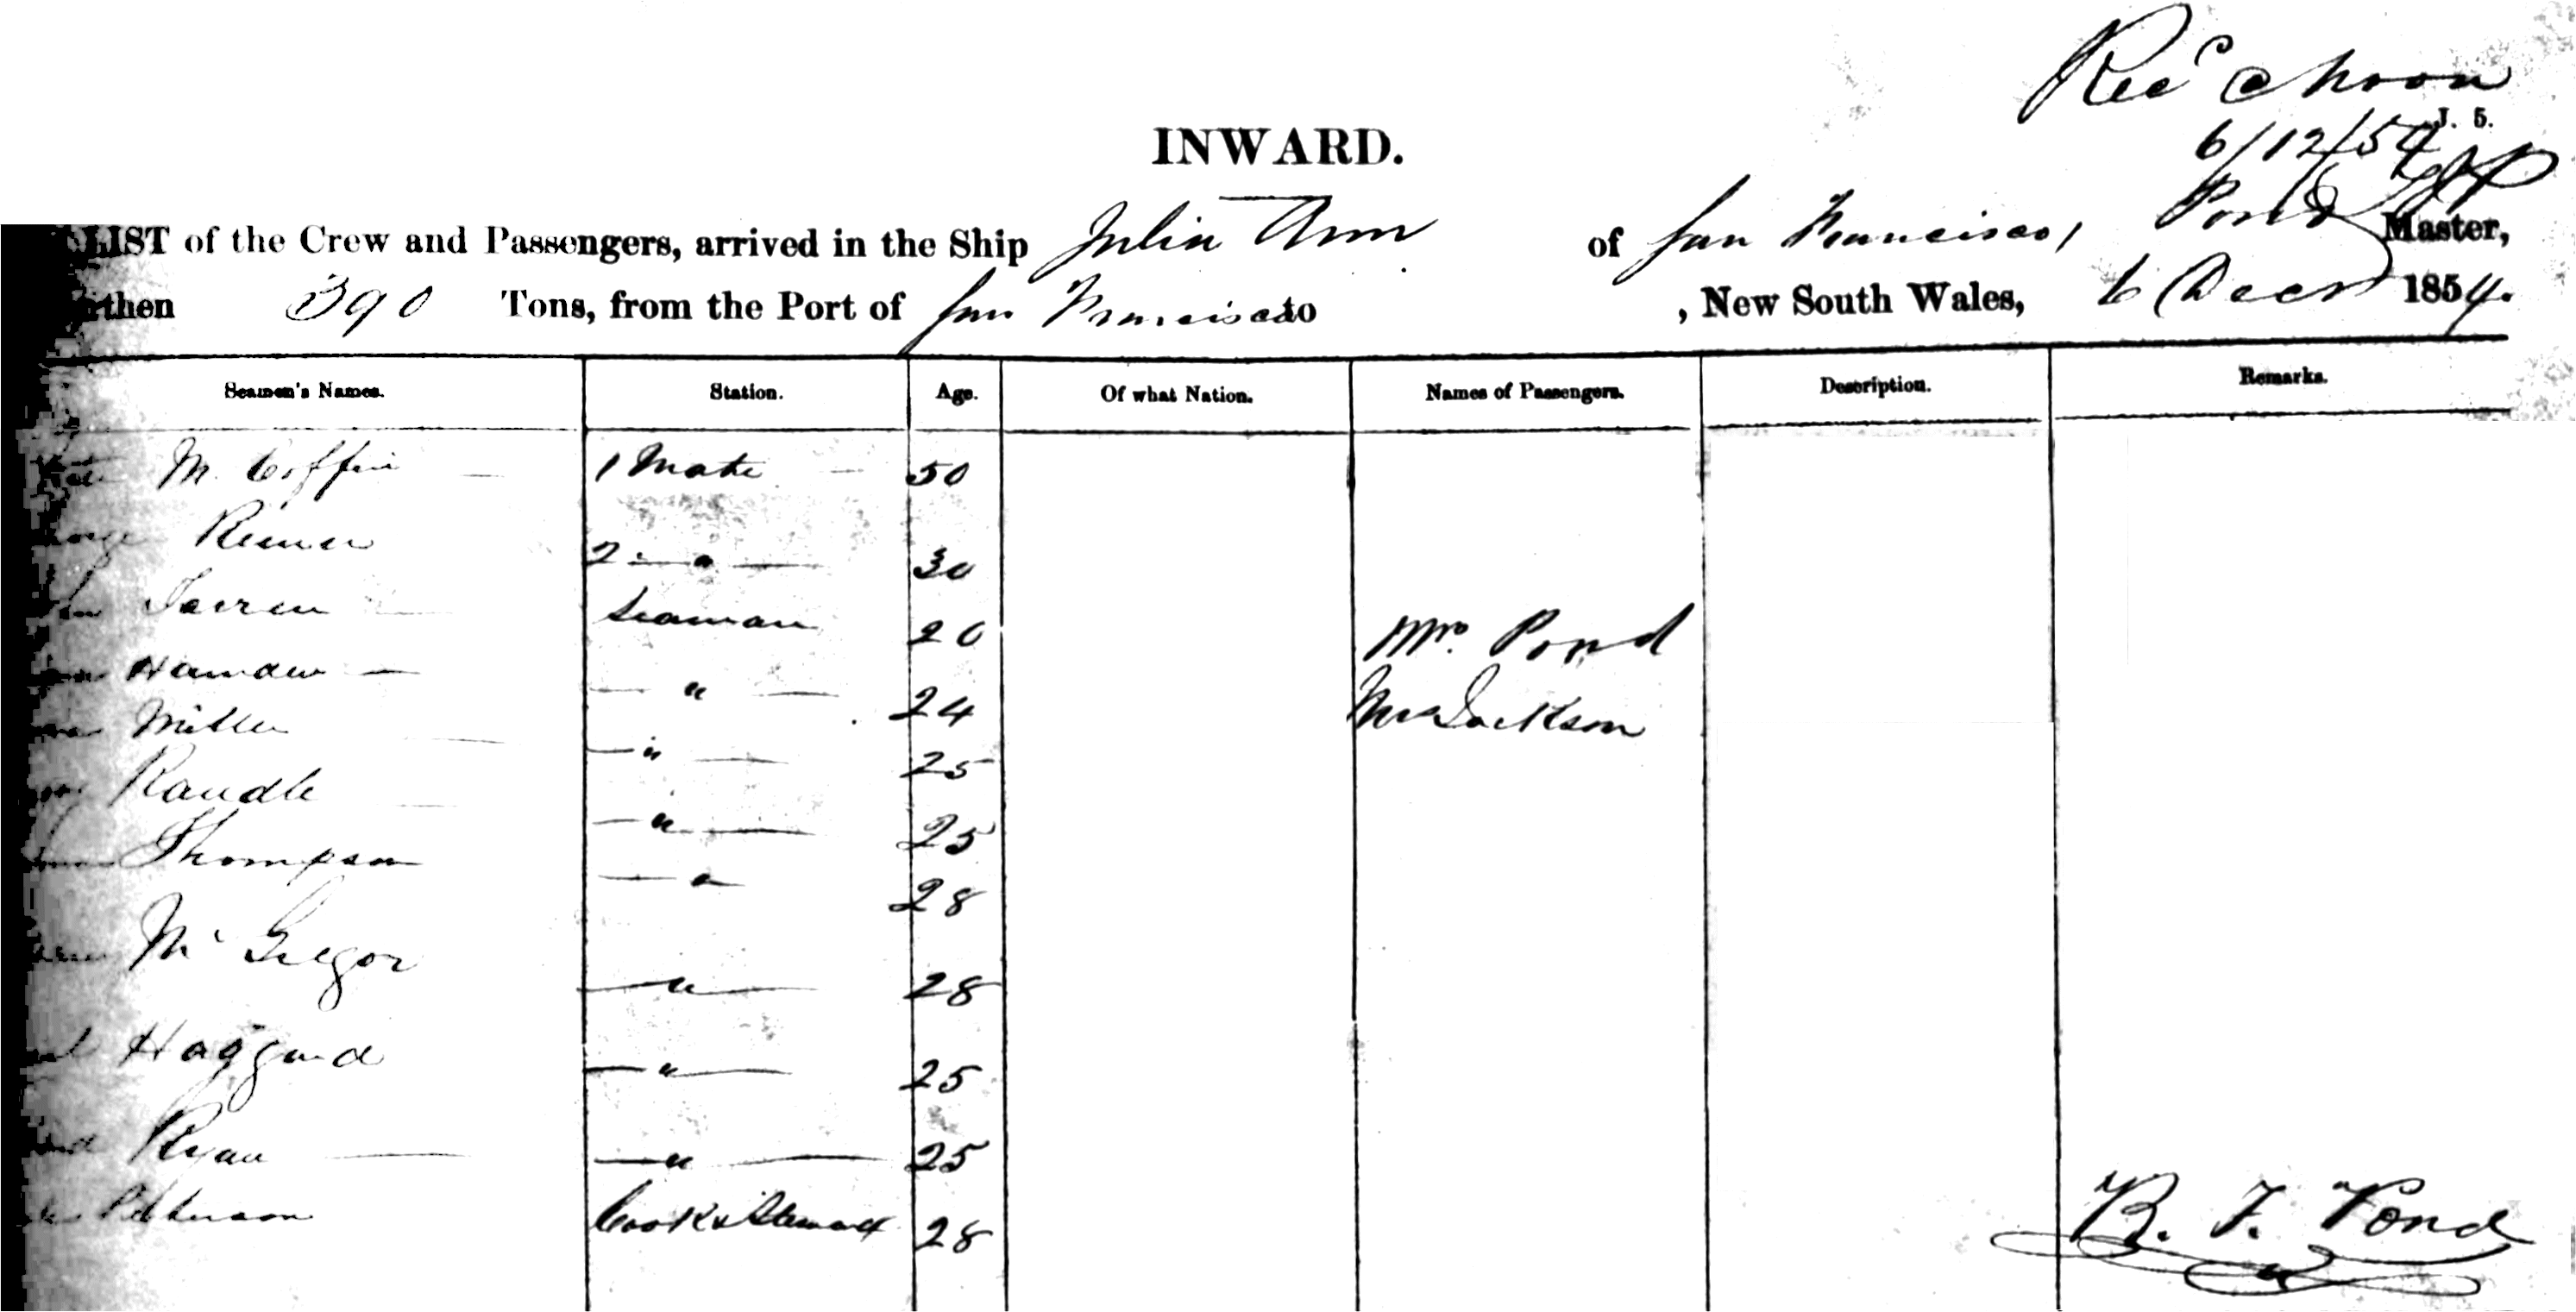 Recd @ Noon
J. 5.
6/12/54
INWARD.
LIST of the Crew and Passengers, arrived in the Ship Julia Ann of San Francisco, Pond Master,
then 390 Tons, from the Port of San Francisco to , New South Wales, 6 Decr 1854.
Seamen's Names. Station. Age. Of what Nation. Names of Passengers. Description. Remarks.
M. Coffin 1 Mate 50
2 " 30
Seaman 20
Mrs. Pond
Hamden " 24
Mrs Jackson
Miller " 25
Randle " 25
Thompson " 28
Mc Gregor " 28
Haggard " 25
Ryan " 25
Peterson Cook & Steward 28
B. F. Pond